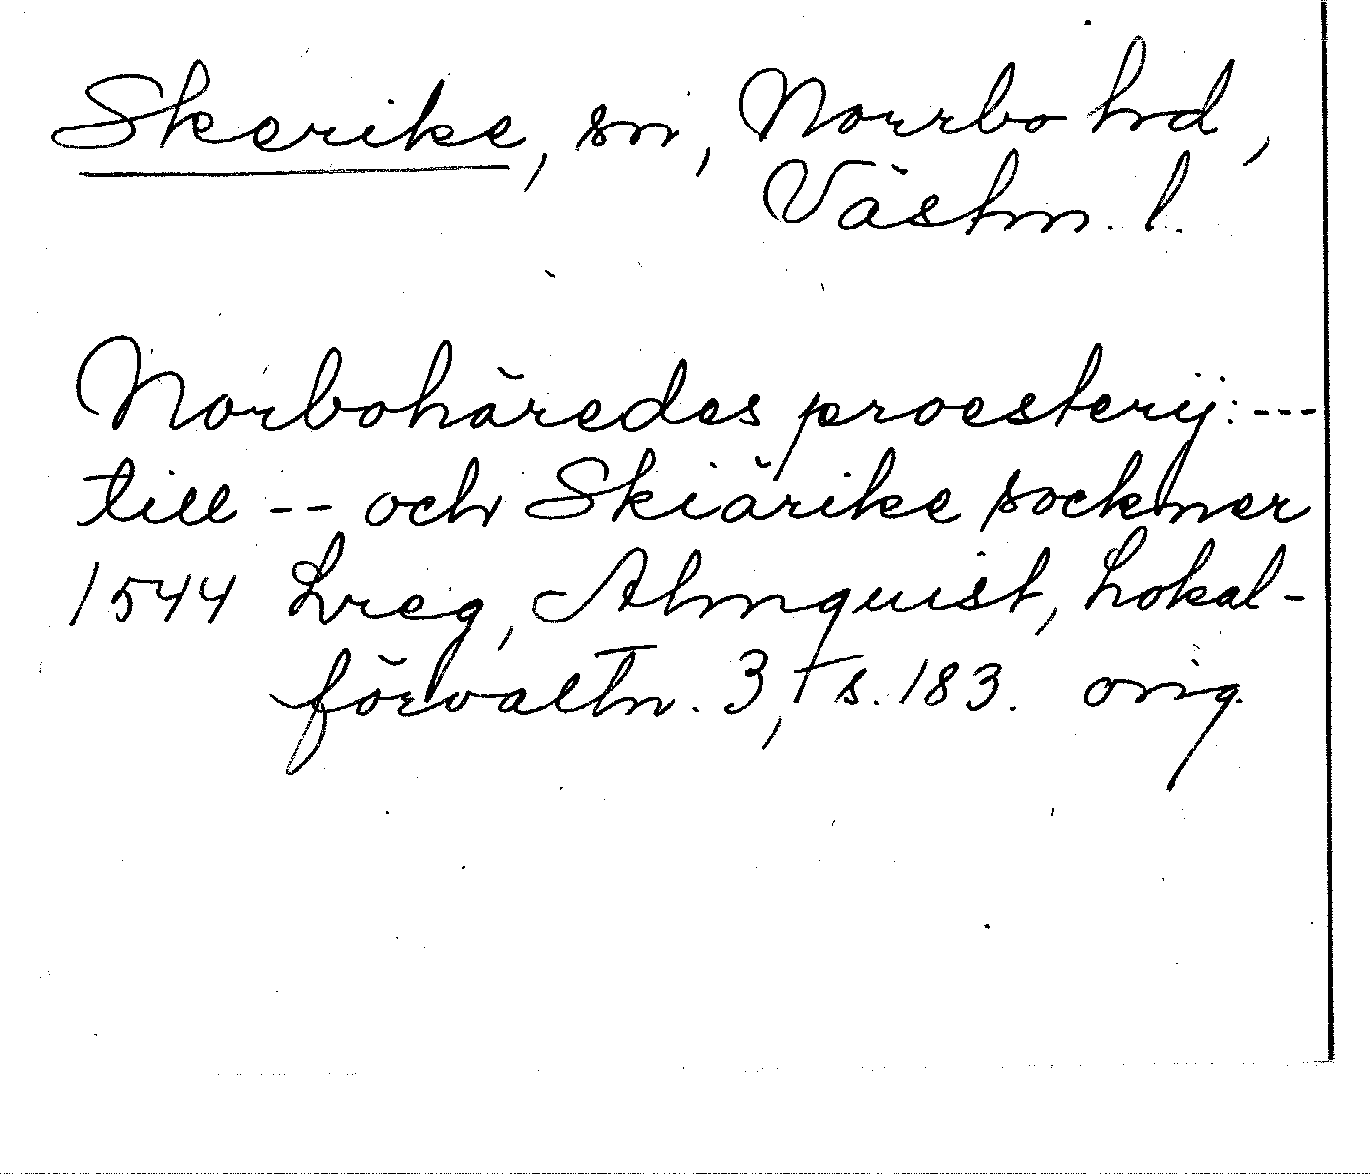 Skerike, sn, Norrbo hd,
Västm. l.
Norbohäredes proesterij: ---
till -- och Skiärike sockner
1544 Lreg, Almquist, Lokal-
förvaltn. 3, s. 183. orig.